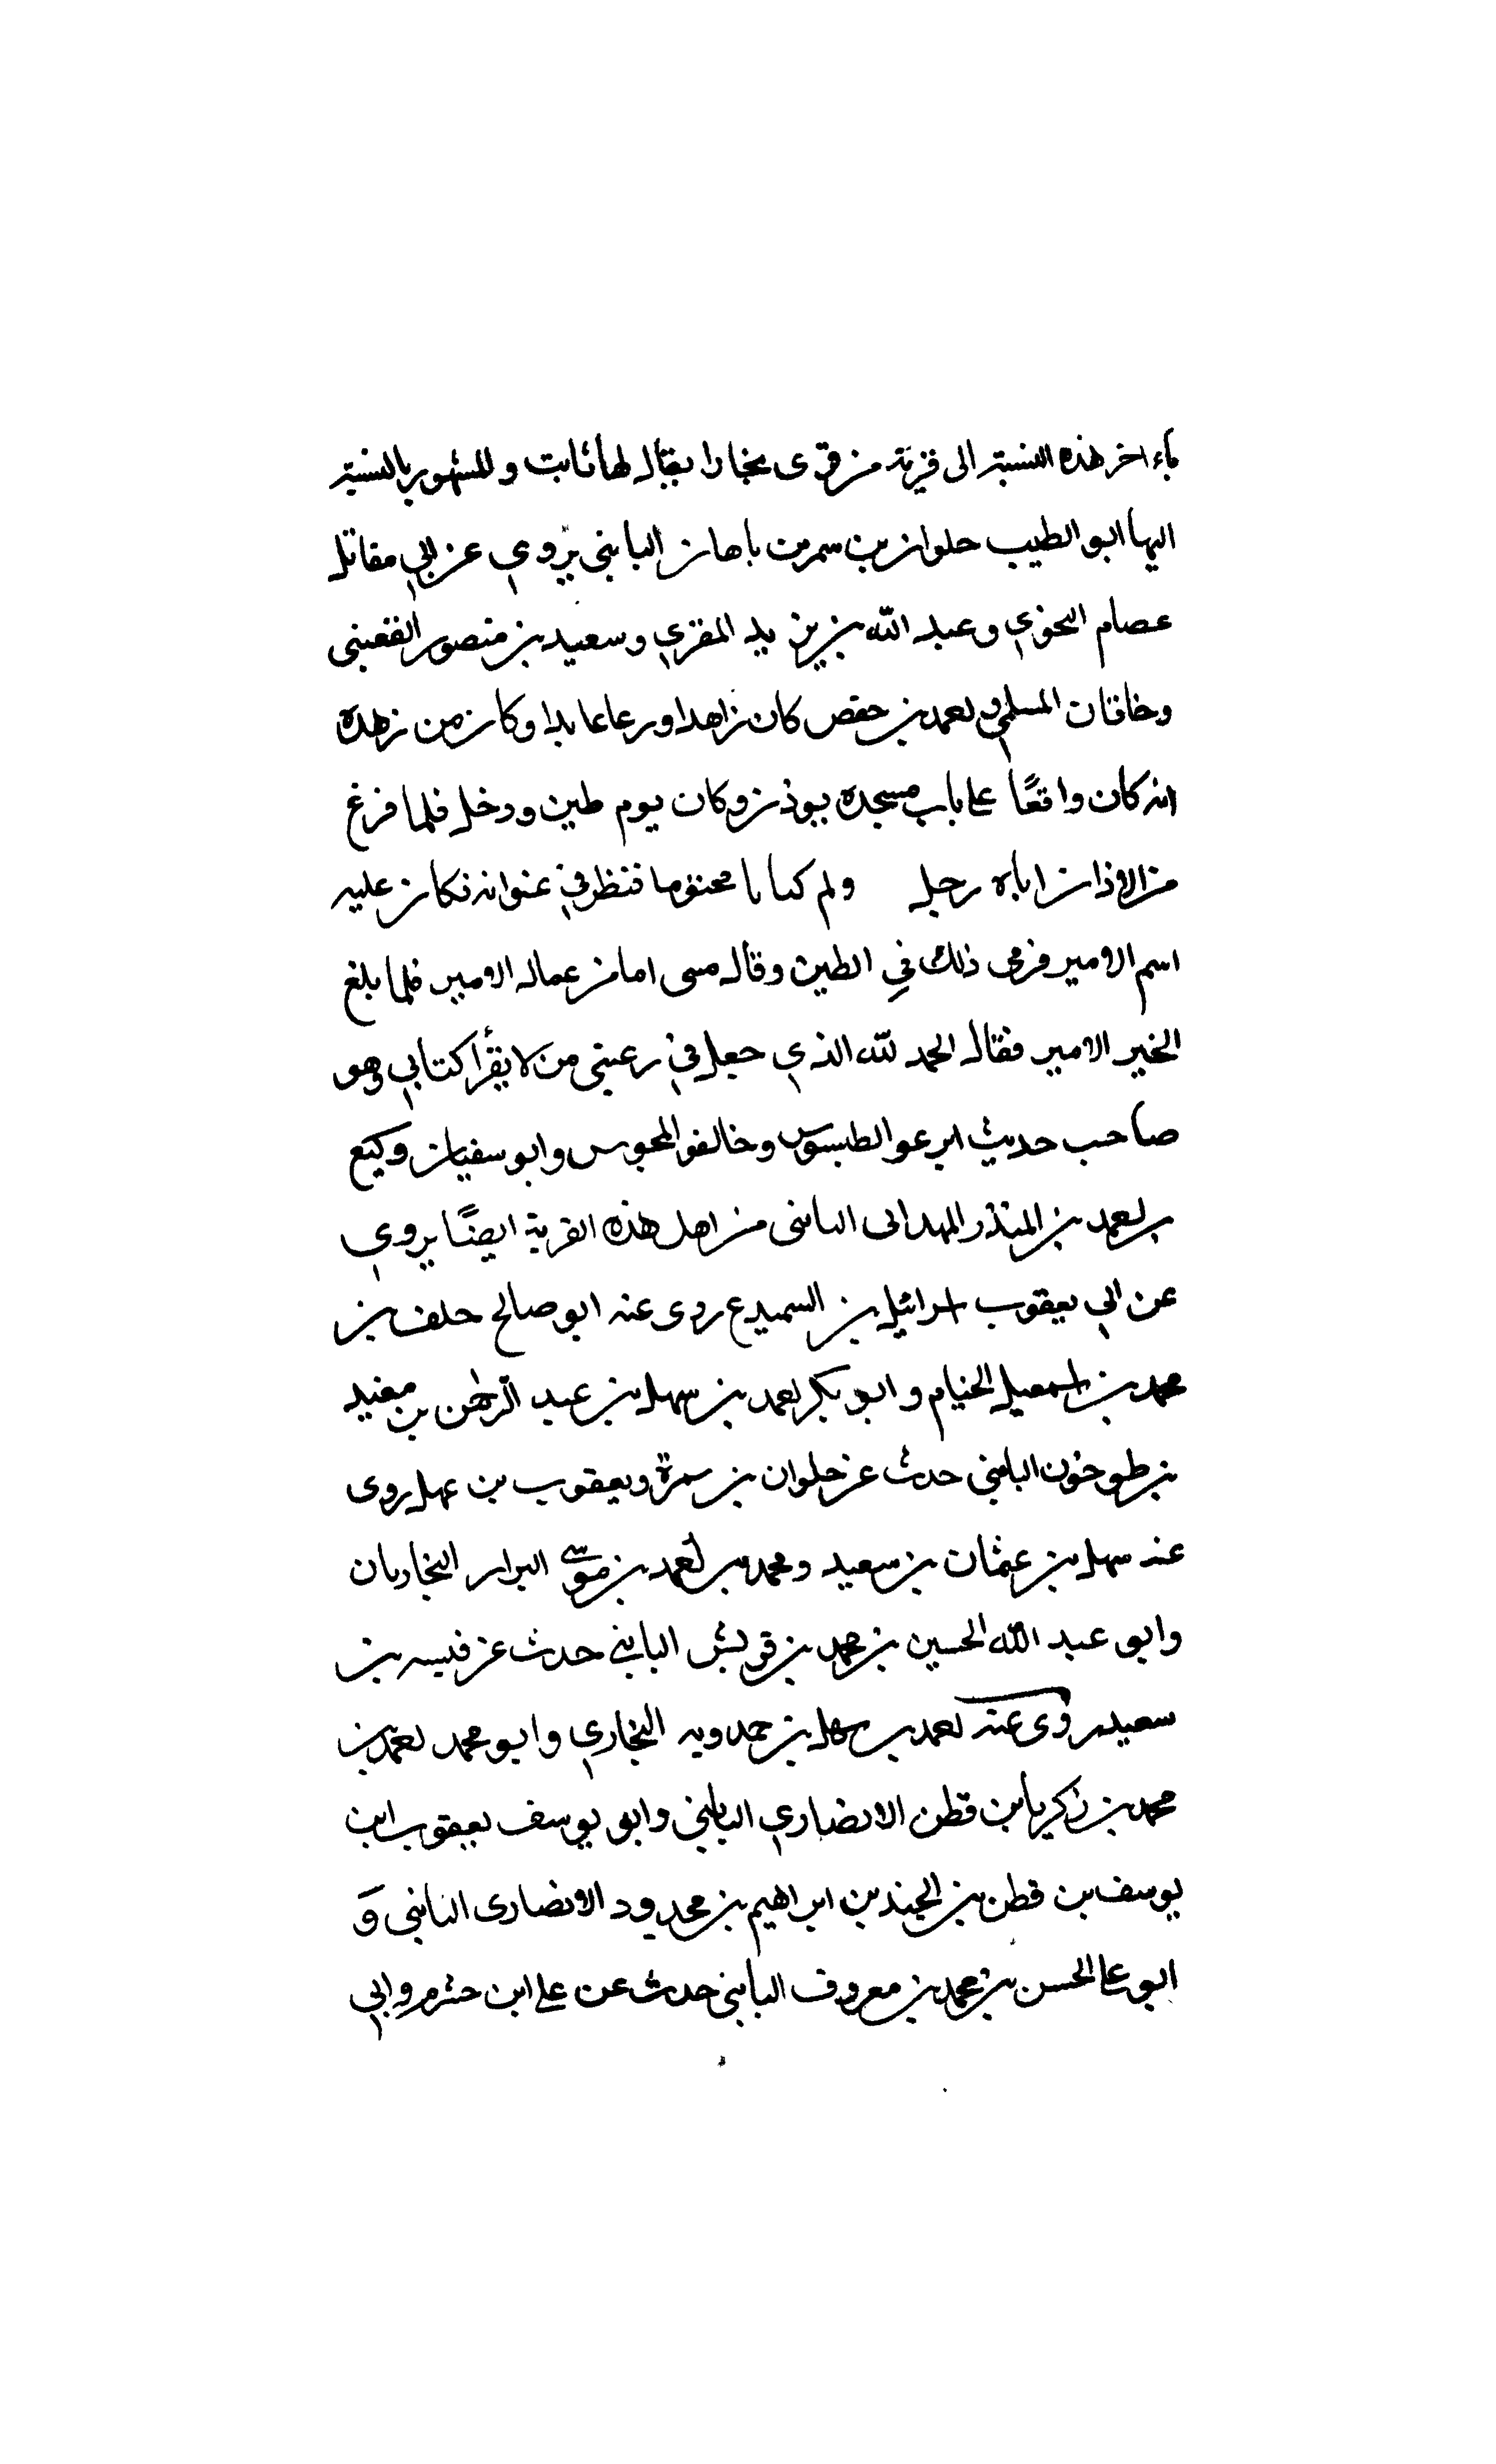 باء اخر هذه النسبة الى قرية من قرى بخارا يقال لها ثابت والمشهور بالنسبة
اليها ابو الطيب حلوان بن سمرىن ماهان البابنى يروي عن ابي مقاتل
عصام النحوي وعبد الله بن يزيد المقري وسعيد بن منصور القعبنى
وخاقان السلمي واحمد بن حفص كان زاهدا ورعا عابدا وكان من زهده
انه كان واقعًا على باب مسجده يوذن وكان يوم طين ودخل فلما فرغ
من الاذان اباه رجل ولم كىاىا محتوما فنظر في عنوانه فكان عليه
اسم الامير فرمى ذلك في الطين وقال متى اما من عمال الامير فلما بلغ
الخبر الامير فقال الحمد لله الذي جعل في رعيتى من لا يقرأ كتابي وهو
صاحب حديث ابرعو الطسوس وخالفو المجوس وابو سفيان وكيع
بن احمد بن المنذر الهمدانى البابنى من اهل هذه القرية ايضًا يروي
عن ابي يعقوب اسرائيل بن السميدع روى عنه ابو صالح خلف بن
محمد بن اسمعيل الخيام وابو بكر احمد بن سهل بن عبد الرحمن بن معبد
بن طوخون البابنى حدث عن حلوان بن سمرة ويعقوب بن عهل روى
عنه سهل بن عثمان بن سعيد ومحمد بن احمد بن موسى البزار البخاريان
وابو عبد الله الحسين بن محمد بن قريش البابنى حدث عن قتيبه بن
سعيد روى عنه احمد بن سهل بن حمدويه البخاري وابو محمد احمد بن
محمد بن زكريا بن قطن الانصاري البابنى وابو يوسف يعقوب ابن
يوسف بن قطن بن الجنيد بن ابراهيم بن محمدود الانصارى البابنى وَ
ابو على الحسن بن محمد بن معروف البابنى حدث عن على ابن خشرم وابي